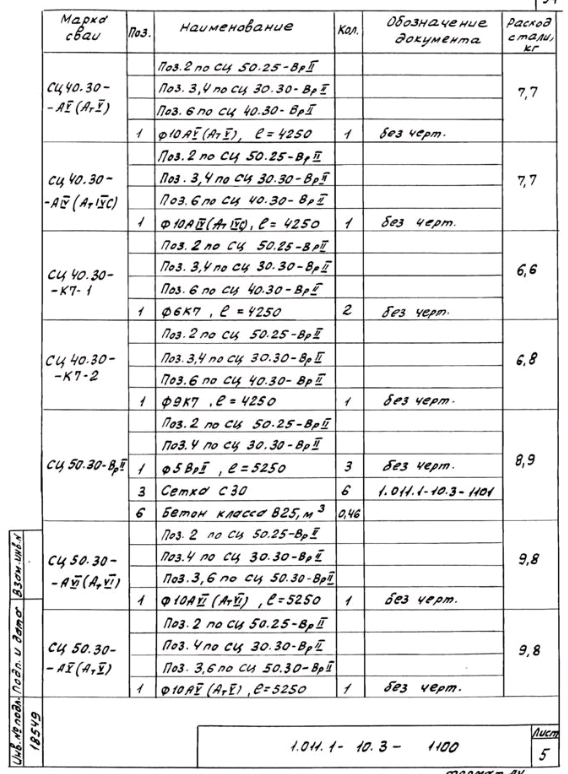 Марка сваи | Поз. | Наименование | Кол. | Обозначение документа | Расход стали, кг
СЦ 40.30-
-АV (АтV) | 7,7
Поз. 2 по СЦ 50.25-ВрII
Поз. 3,4 по СЦ 30.30-ВрII
Поз. 6 по СЦ 40.30-ВрII
1 | ф10АV (АтV), ℓ=4250 | 1 | без черт.
СЦ 40.30-
-АIV (АтIVС) | 7,7
Поз. 2 по СЦ 50.25-ВрII
Поз. 3,4 по СЦ 30.30-ВрII
Поз. 6 по СЦ 40.30-ВрII
1 | ф10АIV (АтIVС), ℓ=4250 | 1 | без черт.
СЦ 40.30-
-К7-1 | 6,6
Поз. 2 по СЦ 50.25-ВрII
Поз. 3,4 по СЦ 30.30-ВрII
Поз. 6 по СЦ 40.30-ВрII
1 | ф6К7, ℓ=4250 | 2 | без черт.
СЦ 40.30-
-К7-2 | 6,8
Поз. 2 по СЦ 50.25-ВрII
Поз. 3,4 по СЦ 30.30-ВрII
Поз. 6 по СЦ 40.30-ВрII
1 | ф9К7, ℓ=4250 | 1 | без черт.
СЦ 50.30-ВрII | 8,9
Поз. 2 по СЦ 50.25-ВрII
Поз. 4 по СЦ 30.30-ВрII
1 | ф5ВрII, ℓ=5250 | 3 | без черт.
3 | Сетка С30 | 6 | 1.011.1-10.3-1101
6 | Бетон класса В25, м³ | 0,46
СЦ 50.30-
-АVI (АтVI) | 9,8
Поз. 2 по СЦ 50.25-ВрII
Поз. 4 по СЦ 30.30-ВрII
Поз. 3,6 по СЦ 50.30-ВрII
1 | ф10АVI (АтVI), ℓ=5250 | 1 | без черт.
СЦ 50.30-
-АV (АтV) | 9,8
Поз. 2 по СЦ 50.25-ВрII
Поз. 4 по СЦ 30.30-ВрII
Поз. 3,6 по СЦ 50.30-ВрII
1 | ф10АV (АтV), ℓ=5250 | 1 | без черт.
Инв.№ подл. | Подп. и дата | Взам.инв.№
18549
1.011.1-10.3- 1100
Лист
5